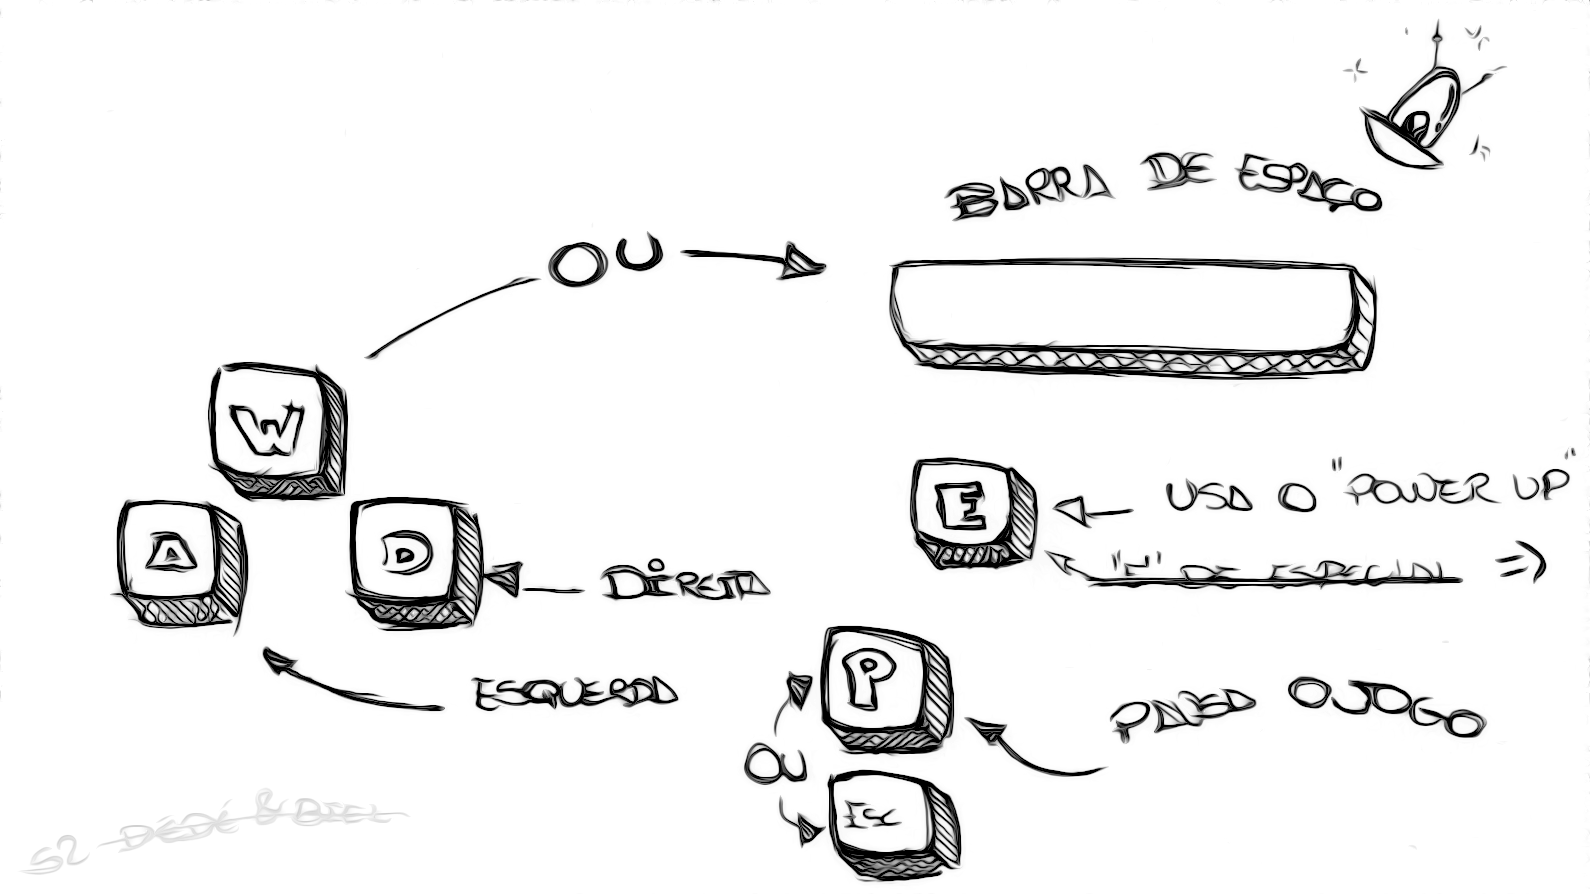 BARRA DE ESPAÇO
OU
W
A
D
DIREITA
ESQUERDA
E
USA O "POWER UP"
DE ESPECIAL =>
P
OU
ESC
PAUSA O JOGO
S2 DÉDÉ & BIEL